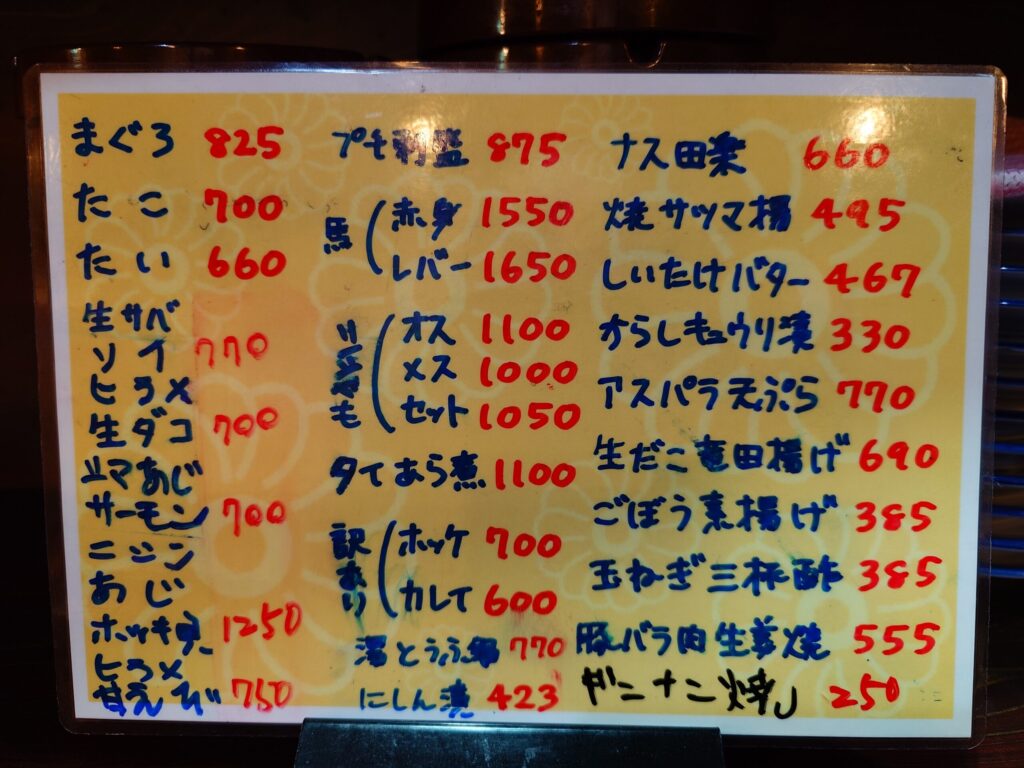 まぐろ 825
たこ 700
たい 660
生サバ
ソイ 770
ヒラメ
生ダコ 700
シマあじ
サーモン 700
ニシン
あじ
ホッキ貝 1250
ヒラメ
甘えび 750
プチ刺盛 875
馬
赤身 1550
レバー 1650
オス 1100
メス 1000
セット 1050
タイあら煮 1100
訳あり
ホッケ 700
カレイ 600
湯とうふ鍋 770
にしん漬 423
ナス田楽 660
焼サツマ揚 495
しいたけバター 467
からしキュウリ漬 330
アスパラ天ぷら 770
生だこ竜田揚げ 690
ごぼう素揚げ 385
玉ねぎ三杯酢 385
豚バラ肉生姜焼 555
250